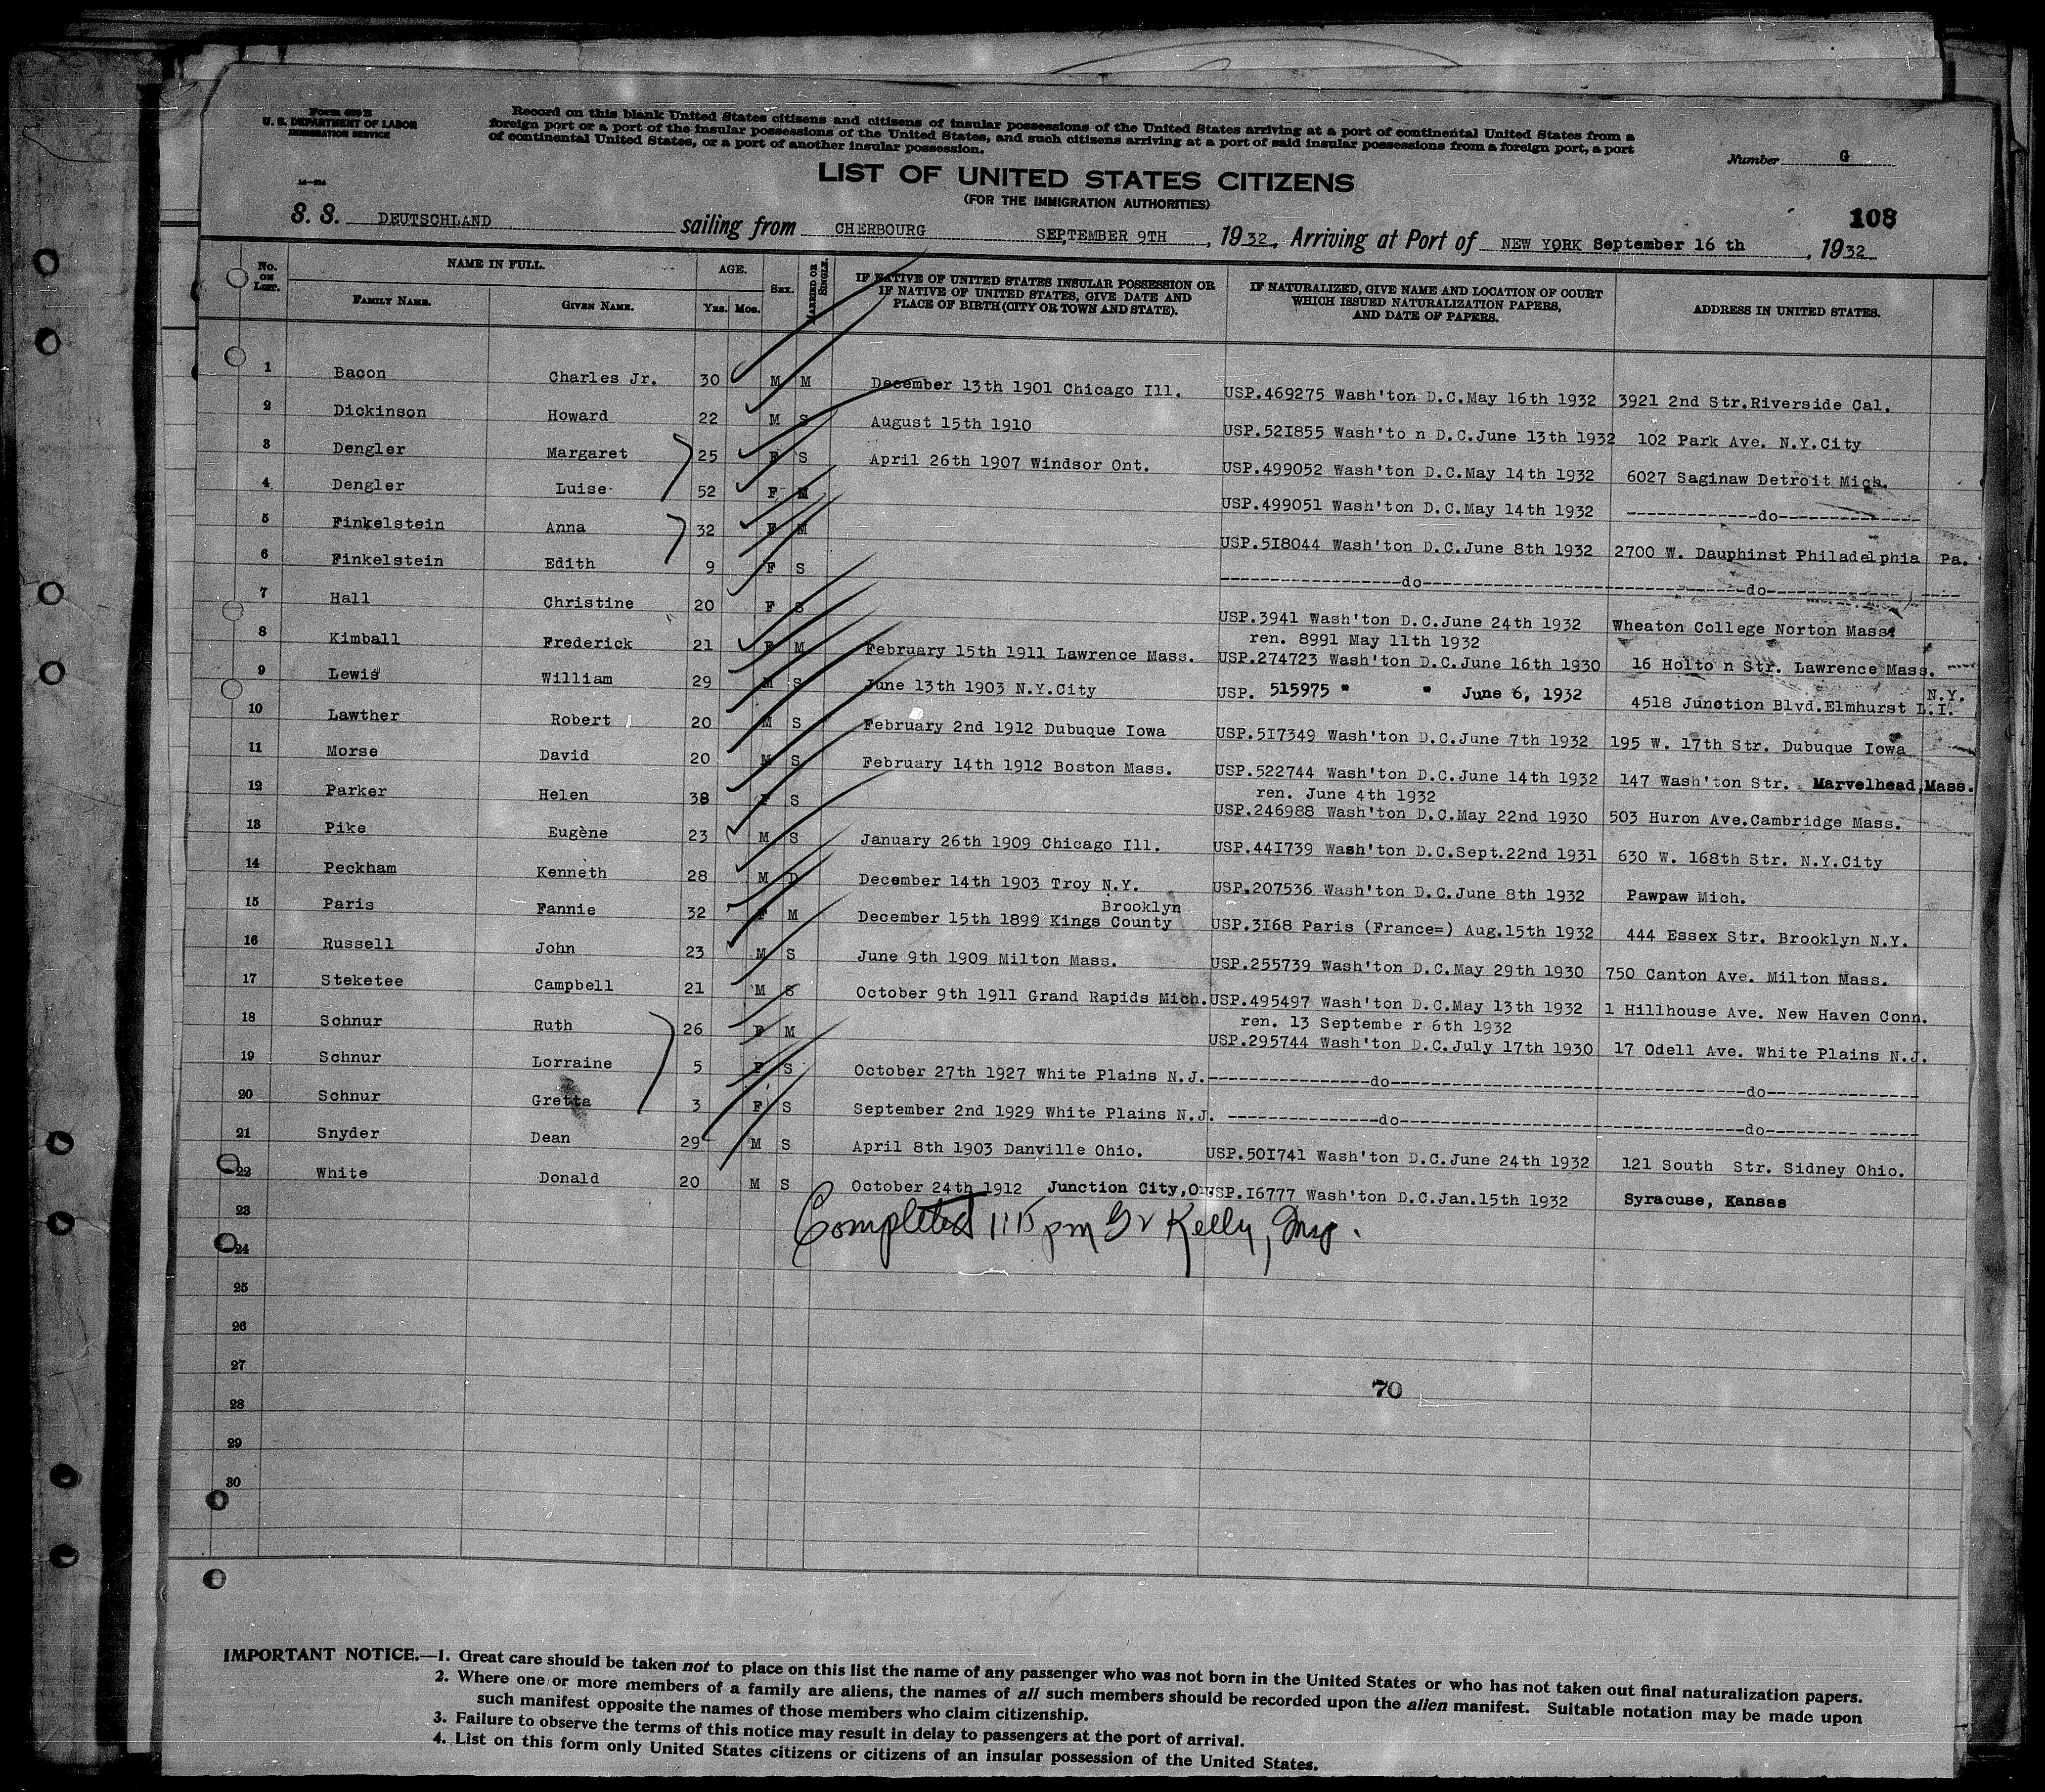 Form 630 B
U. S. DEPARTMENT OF LABOR
IMMIGRATION SERVICE
Record on this blank United States citizens and citizens of insular possessions of the United States arriving at a port of continental United States from a
foreign port or a port of the insular possessions of the United States, and such citizens arriving at a port of said insular possessions from a foreign port, a port
of continental United States, or a port of another insular possession.
Number G
LIST OF UNITED STATES CITIZENS
(FOR THE IMMIGRATION AUTHORITIES)
108
S. S. DEUTSCHLAND sailing from CHERBOURG SEPTEMBER 9TH, 1932, Arriving at Port of NEW YORK September 16 th, 1932
No. ON LIST. NAME IN FULL. FAMILY NAME. GIVEN NAME. AGE. Yrs. Mos. SEX. MARRIED OR SINGLE. IF NATIVE OF UNITED STATES INSULAR POSSESSION OR IF NATIVE OF UNITED STATES, GIVE DATE AND PLACE OF BIRTH (CITY OR TOWN AND STATE). IF NATURALIZED, GIVE NAME AND LOCATION OF COURT WHICH ISSUED NATURALIZATION PAPERS, AND DATE OF PAPERS. ADDRESS IN UNITED STATES.
1 Bacon Charles Jr. 30 M M December 13th 1901 Chicago Ill. USP.469275 Wash'ton D.C.May 16th 1932 3921 2nd Str.Riverside Cal.
2 Dickinson Howard 22 M S August 15th 1910 USP.521855 Wash'to n D.C.June 13th 1932 102 Park Ave. N.Y.City
3 Dengler Margaret 25 F S April 26th 1907 Windsor Ont. USP.499052 Wash'ton D.C.May 14th 1932 6027 Saginaw Detroit Mich.
4 Dengler Luise 52 F M USP.499051 Wash'ton D.C.May 14th 1932 --------------do--------------
5 Finkelstein Anna 32 F M USP.518044 Wash'ton D.C.June 8th 1932 2700 W. Dauphinst Philadelphia Pa.
6 Finkelstein Edith 9 F S ------------------do------------------ --------------do--------------
7 Hall Christine 20 F S USP.3941 Wash'ton D.C.June 24th 1932 Wheaton College Norton Mass.
ren. 8991 May 11th 1932
8 Kimball Frederick 21 F M February 15th 1911 Lawrence Mass. USP.274723 Wash'ton D.C.June 16th 1930 16 Holto n Str. Lawrence Mass.
9 Lewis William 29 M S June 13th 1903 N.Y.City USP. 515975 " " June 6, 1932 4518 Junction Blvd.Elmhurst L.I. N.Y.
10 Lawther Robert 20 M S February 2nd 1912 Dubuque Iowa USP.517349 Wash'ton D.C.June 7th 1932 195 W. 17th Str. Dubuque Iowa
11 Morse David 20 M S February 14th 1912 Boston Mass. USP.522744 Wash'ton D.C.June 14th 1932 147 Wash'ton Str. Marvelhead,Mass.
ren. June 4th 1932
12 Parker Helen 38 F S USP.246988 Wash'ton D.C.May 22nd 1930 503 Huron Ave.Cambridge Mass.
13 Pike Eugène 23 M S January 26th 1909 Chicago Ill. USP.441739 Wash'ton D.C.Sept.22nd 1931 630 W. 168th Str. N.Y.City
14 Peckham Kenneth 28 M D December 14th 1903 Troy N.Y. USP.207536 Wash'ton D.C.June 8th 1932 Pawpaw Mich.
Brooklyn
15 Paris Fannie 32 F M December 15th 1899 Kings County USP.3168 Paris (France=) Aug.15th 1932 444 Essex Str. Brooklyn N.Y.
16 Russell John 23 M S June 9th 1909 Milton Mass. USP.255739 Wash'ton D.C.May 29th 1930 750 Canton Ave. Milton Mass.
17 Steketee Campbell 21 M S October 9th 1911 Grand Rapids Mich. USP.495497 Wash'ton D.C.May 13th 1932 1 Hillhouse Ave. New Haven Conn.
ren. 13 Septembe r 6th 1932
18 Schnur Ruth 26 F M USP.295744 Wash'ton D.C.July 17th 1930 17 Odell Ave. White Plains N.J.
19 Schnur Lorraine 5 F S October 27th 1927 White Plains N.J. ----------------do---------------- ----------------do----------------
20 Schnur Gretta 3 F S September 2nd 1929 White Plains N.J. ----------------do---------------- ----------------do----------------
21 Snyder Dean 29 M S April 8th 1903 Danville Ohio. USP.501741 Wash'ton D.C.June 24th 1932 121 South Str. Sidney Ohio.
22 White Donald 20 M S October 24th 1912 Junction City,O. USP.16777 Wash'ton D.C.Jan.15th 1932 Syracuse, Kansas
23
Completed 1115 pm Kelly, Insp.
24
25
26
27
70
28
29
30
IMPORTANT NOTICE.—1. Great care should be taken not to place on this list the name of any passenger who was not born in the United States or who has not taken out final naturalization papers.
2. Where one or more members of a family are aliens, the names of all such members should be recorded upon the alien manifest. Suitable notation may be made upon
such manifest opposite the names of those members who claim citizenship.
3. Failure to observe the terms of this notice may result in delay to passengers at the port of arrival.
4. List on this form only United States citizens or citizens of an insular possession of the United States.